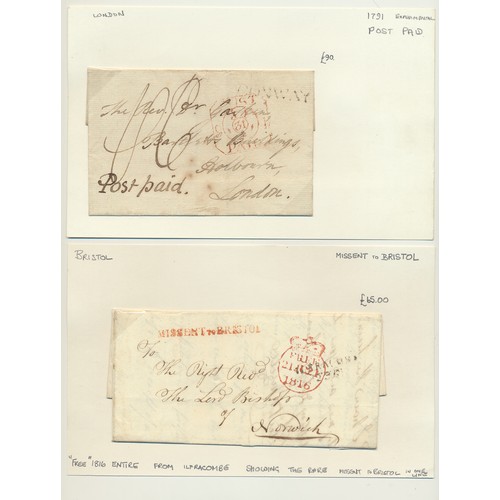 LONDON
1791 EXPERIMENTAL
POST PAID
£90.
The Rev. Dr. Gaskin
Bartlett's Buildings,
Holbourn,
London.
Post paid.
BRISTOL
MISSENT TO BRISTOL
£65.00
MISSENT TO BRISTOL
FREE
1816
To
The Right Revd
The Lord Bishop
of
Norwich
"FREE" 1816 ENTIRE FROM ILFRACOMBE SHOWING THE RARE MISSENT TO BRISTOL IN ONE LINE